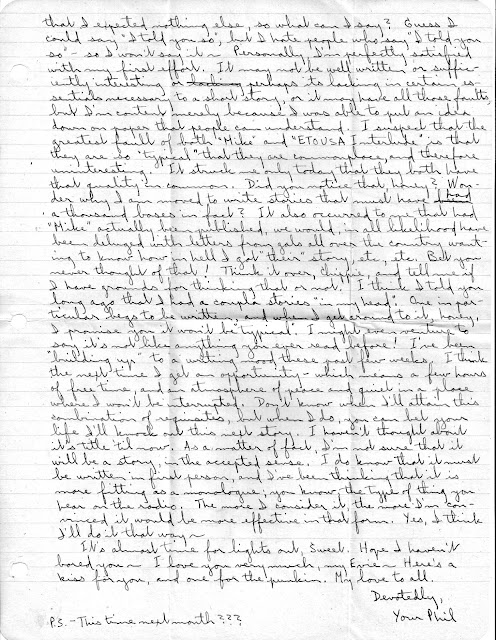 that I expected nothing else, so what can I say? Guess I
could say "I told you so", but I hate people who say "I told you
so" – so I won't say it ~ Personally, I'm perfectly satisfied
with my first effort. It may not be well written or suffic-
iently interesting or perhaps to lacking in certain es-
sentials necessary to a short story, or it may have all those faults,
but I'm content merely because I was able to put an idea
down on paper that people can understand. I suspect that the
greatest fault of both "Mike" and "ETOUSA Interlude", is that
they are so "typical" that they are commonplace, and therefore
uninteresting. It struck me only today that they both have
that quality in common. Did you notice that, honey? Won-
der why I am moved to write stories that must have had
a thousand bases in fact? It also occurred to me that had
"Mike" actually been published, we would, in all likelihood have
been deluged with letters from gals all over the country want-
ing to know how in hell I got "their" story, etc, etc. Bet you
never thought of that! Think it over, Chippie, and tell me if
I have grounds for thinking that or not! I think I told you
long ago that I had a coupla stories "in my head". One in par-
ticular begs to be written – and when I get around to it, honey,
I promise you it won't be "typical". I might even venture to
say it's not like anything you ever read before! I've been
"building up" to a writing mood these past few weeks. I think
the next time I get an opportunity – which means a few hours
of free time, and an atmosphere of peace and quiet in a place
where I won't be interrupted. Don't know when I'll attain this
combination of requisites, but when I do, you can bet your
life I'll knock out this next story. I haven't thought about
it's title til now. As a matter of fact, I'm not sure that it
will be a story, in the accepted sense. I do know that it must
be written in first person, and I've been thinking that it is
more fitting as a monologue; you know the type of thing you
hear on the radio. The more I consider it, the more I'm con-
vinced it would be more effective in that form. Yes, I think
I'll do it that way ~
It's almost time for lights out, Sweet. Hope I haven't
bored you ~ I love you very much, my Evvie ~ Here's a
kiss for you, and one for the punkin. My love to all.
Devotedly,
Your Phil
P.S. – This time next month???